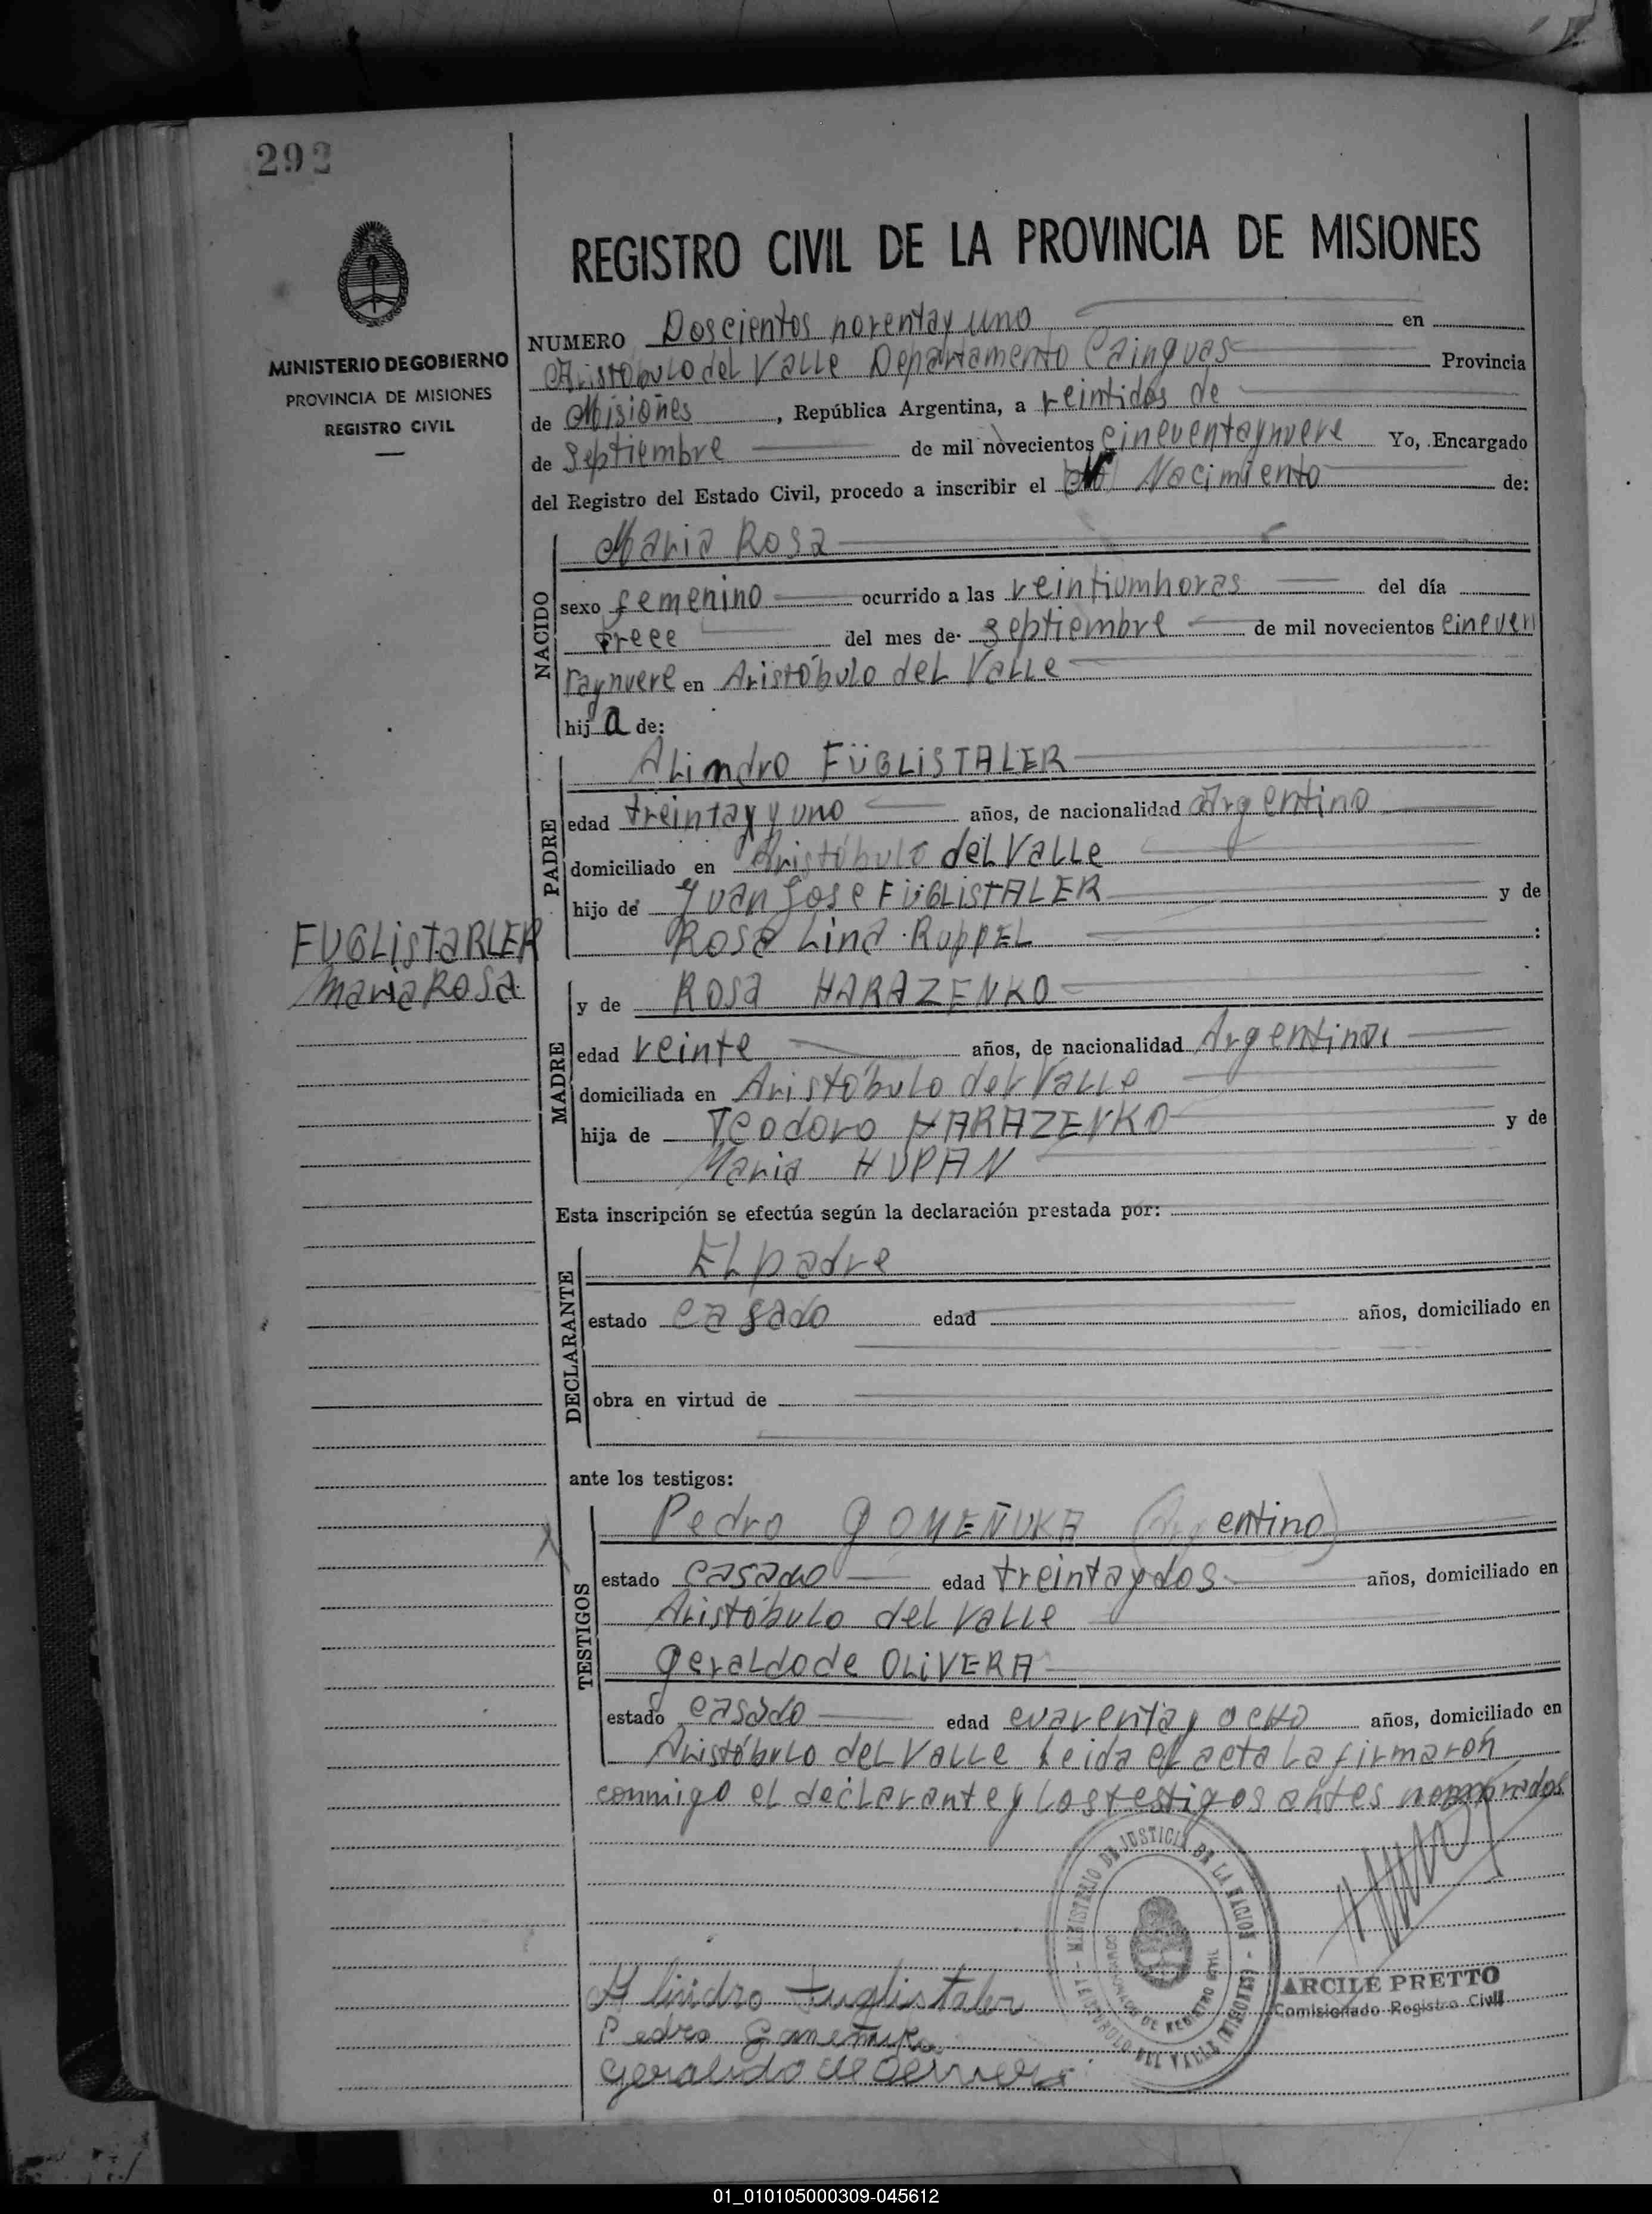 292
MINISTERIO DE GOBIERNO
PROVINCIA DE MISIONES
REGISTRO CIVIL
REGISTRO CIVIL DE LA PROVINCIA DE MISIONES
NUMERO Doscientos noventay uno en
Aristóbulo del Valle Departamento Cainguas Provincia
de Misiones, República Argentina, a veintidos de
de Septiembre de mil novecientos cincuentaynueve Yo, Encargado
del Registro del Estado Civil, procedo a inscribir el Nacimiento de:
NACIDO
Maria Rosa
sexo femenino ocurrido a las veintiumhoras del día
trece del mes de septiembre de mil novecientos cincuen
taynueve en Aristóbulo del Valle
hija de:
PADRE
Alindro FÜGLISTALER
edad treintay y uno años, de nacionalidad Argentino
domiciliado en Aristóbulo del Valle
hijo de Juan Jose FÜGLISTALER y de
Rosa Lina Ruppel :
FUGLISTARLER
Maria Rosa
MADRE
y de Rosa HARAZENKO
edad veinte años, de nacionalidad Argentina
domiciliada en Aristóbulo del Valle
hija de Teodoro HARAZENKO y de
Maria HUPAN
Esta inscripción se efectúa según la declaración prestada por:
DECLARANTE
El padre
estado casado edad años, domiciliado en
obra en virtud de
ante los testigos:
TESTIGOS
Pedro GOMEÑUKA (Argentino)
estado casado edad treintaydos años, domiciliado en
Aristóbulo del Valle
Geraldo de OLIVERA
estado casado edad cuarentay ocho años, domiciliado en
Aristóbulo del Valle Leida el acta la firmarón
conmigo el declarante y los testigos antes nombrados
MINISTERIO DE JUSTICIA DE LA NACION - ARISTOBULO DEL VALLE (MISIONES)
DE REGISTRO CIVIL
Alindro Fuglistaler
ARCILE PRETTO
Comisionado Registro Civil
Pedro Gomeñuka
Geraldo de Olivera
01_010105000309-045612